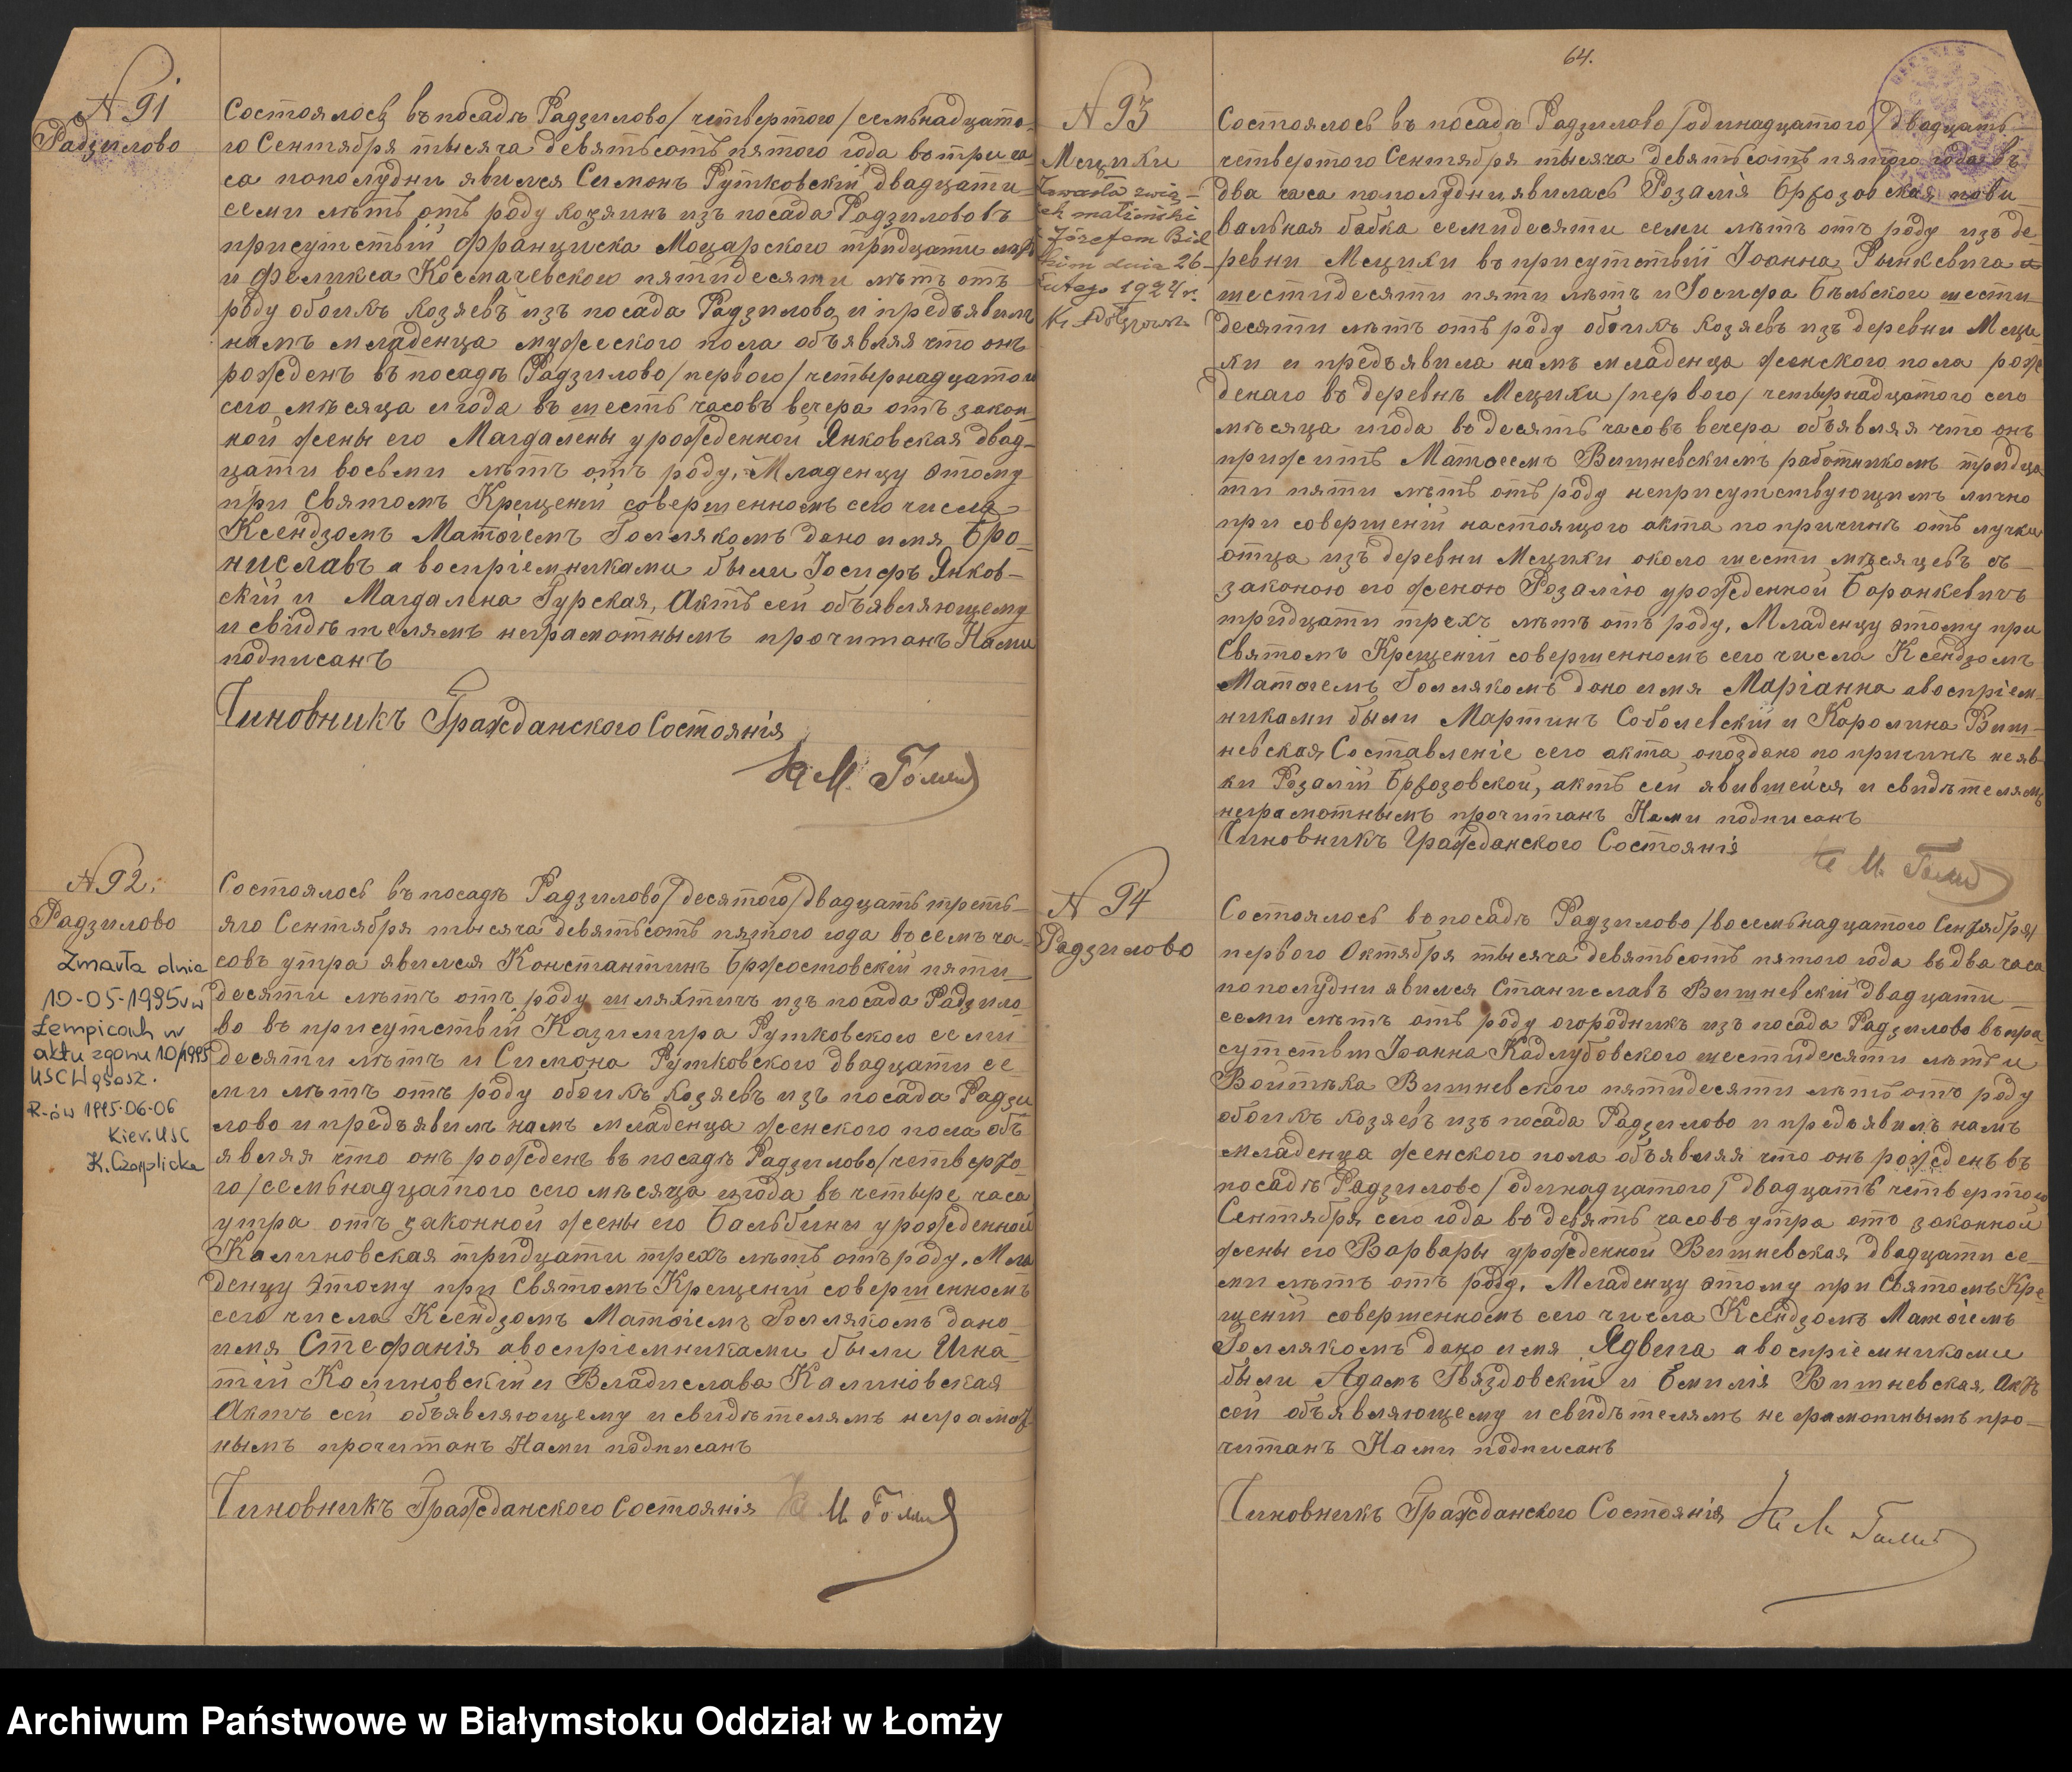 N 91
Радзилово
Состоялось въ посадѣ Радзилово /четвертого/ семьнадцато-
го Сентября тысяча девятьсотъ пятого года въ три ча
са пополудни явился Симонъ Рутковскій двадцати
семи лѣтъ отъ роду хозяинъ изъ посада Радзилово въ
присутствіи Франциска Моцарского тридцати лѣтъ
и Феликса Космачевского пятидесяти лѣтъ отъ
роду обоихъ хозяевъ изъ посада Радзилово и предъявилъ
намъ младенца мужеского пола объявляя что онъ
рожденъ въ посадѣ Радзилово /первого/ четырнадцатого
сего мѣсяца и года въ шесть часовъ вечера отъ закон
ной жены его Магдалены урожденной Янковская двад-
цати восьми лѣтъ отъ роду. Младенцу этому
при Святомъ Крещеніи совершенномъ сего числа
Ксендзомъ Матѳіемъ Голлякомъ дано имя Бро-
ниславъ а воспріемниками были Іосифъ Янков-
скій и Магдалена Гурская, Актъ сей объявляющему
и свидѣтелямъ неграмотнымъ прочитанъ Нами
подписанъ
Чиновникъ Гражданского Состоянія
Кс М. Голляк
N 92.
Радзилово
Zmarła dnia
10-05-1995r w
Łempicach w
aktu zgonu 10/1995
USC Wąsosz.
R-ów 1995-06-06
Kier. USC
K. Czaplicka
Состоялось въ посадѣ Радзилово /десятого/ двадцать треть-
яго Сентября тысяча девятьсотъ пятого года въ семь ча-
совъ утра явился Константинъ Бржостовскій пяти
десяти лѣтъ отъ роду шляхтичъ изъ посада Радзило
во въ присутствіи Казимира Рутковского семи
десяти лѣтъ и Симона Рутковского двадцати се
ми лѣтъ отъ роду обоихъ хозяевъ изъ посада Радзи
лово и предъявилъ намъ младенца женского пола объ
являя что онъ рожденъ въ посадѣ Радзилово /четверто
го/ семьнадцатого сего мѣсяца и года въ четыре часа
утра отъ законной жены его Бальбины урожденной
Калиновская тридцати трехъ лѣтъ отъ роду. Мла
денцу этому при Святомъ Крещеніи совершенномъ
сего числа Ксендзомъ Матѳіемъ Голлякомъ дано
имя Стефанія а воспріемниками были Игна
тій Калиновскій и Владислава Калиновская
Актъ сей объявляющему и свидѣтелямъ неграмот
нымъ прочитанъ Нами подписанъ
Чиновникъ Гражданского Состоянія Кс М. Голляк
64.
N 93
Мсцихи
Zawarła zwią-
zek małżeński
z Józefem Biel
skim dnia 26
lutego 1924 r.
Состоялось въ посадѣ Радзилово /одинадцатого/ двадцать
четвертого Сентября тысяча девятьсотъ пятого года въ
два часа пополудни явилась Розалія Бржозовская пови
вальная бабка семидесяти семи лѣтъ отъ роду изъ де
ревни Мсцихи въ присутствіи Іоанна Рынкевича
шестидесяти пяти лѣтъ и Іосифа Бѣльского шести
десяти лѣтъ отъ роду обоихъ хозяевъ изъ деревни Мсци
хи и предъявила намъ младенца женского пола рож
денаго въ деревнѣ Мсцихи /первого/ четырнадцатого сего
мѣсяца и года въ десять часовъ вечера объявляя что онъ
прижитъ Матѳеемъ Вишневскимъ работникомъ тридца
ти пяти лѣтъ отъ роду неприсутствующимъ лично
при совершеніи настоящого акта по причинѣ отлучки
отца изъ деревни Мсцихи около шести мѣсяцевъ съ
законою его женою Розалію урожденной Баранкевичъ
тридцати трехъ лѣтъ отъ роду, Младенцу этому при
Святомъ Крещеніи совершенномъ сего числа Ксендзомъ
Матѳемъ Голлякомъ дано имя Маріанна а воспріем-
никами были Мартинъ Соболевскій и Каролина Виш-
невская Составленіе сего акта опоздано по причинѣ неяв
ки Розаліи Бржозовской, актъ сей явившейся и свидѣтелямъ
неграмотнымъ прочитанъ Нами подписанъ
Чиновникъ Гражданского Состоянія
Кс М. Голляк
N 94
Радзилово
Состоялось въ посадѣ Радзилово /восемьнадцатого Сентября/
первого Октября тысяча девятьсотъ пятого года въ два часа
пополудни явился Станиславъ Вишневскій двадцати
семи лѣтъ отъ роду огородникъ изъ посада Радзилово въ при
сутствіи Іоанна Кадлубовского шестидесяти лѣтъ и
Войтѣха Вишневского пятидесяти лѣтъ отъ роду
обоихъ хозяевъ изъ посада Радзилово и предъявилъ намъ
младенца женского пола объявляя что онъ рожденъ въ
посадѣ Радзилово /одинадцатого/ двадцать четвертого
Сентября сего года въ девять часовъ утра отъ законной
жены его Варвары урожденной Вишневская двадцати се-
ми лѣтъ отъ роду. Младенцу этому при Святомъ Кре
щеніи совершенномъ сего числа Ксендзомъ Матѳіемъ
Голлякомъ дано имя Ядвига а воспріемниками
были Адамъ Гвяздовскій и Емилія Вишневская, Актъ
сей объявляющему и свидѣтелямъ неграмотнымъ про-
читанъ Нами подписанъ
Чиновникъ Гражданского Состоянія Кс М Голляк
Archiwum Państwowe w Białymstoku Oddział w Łomży